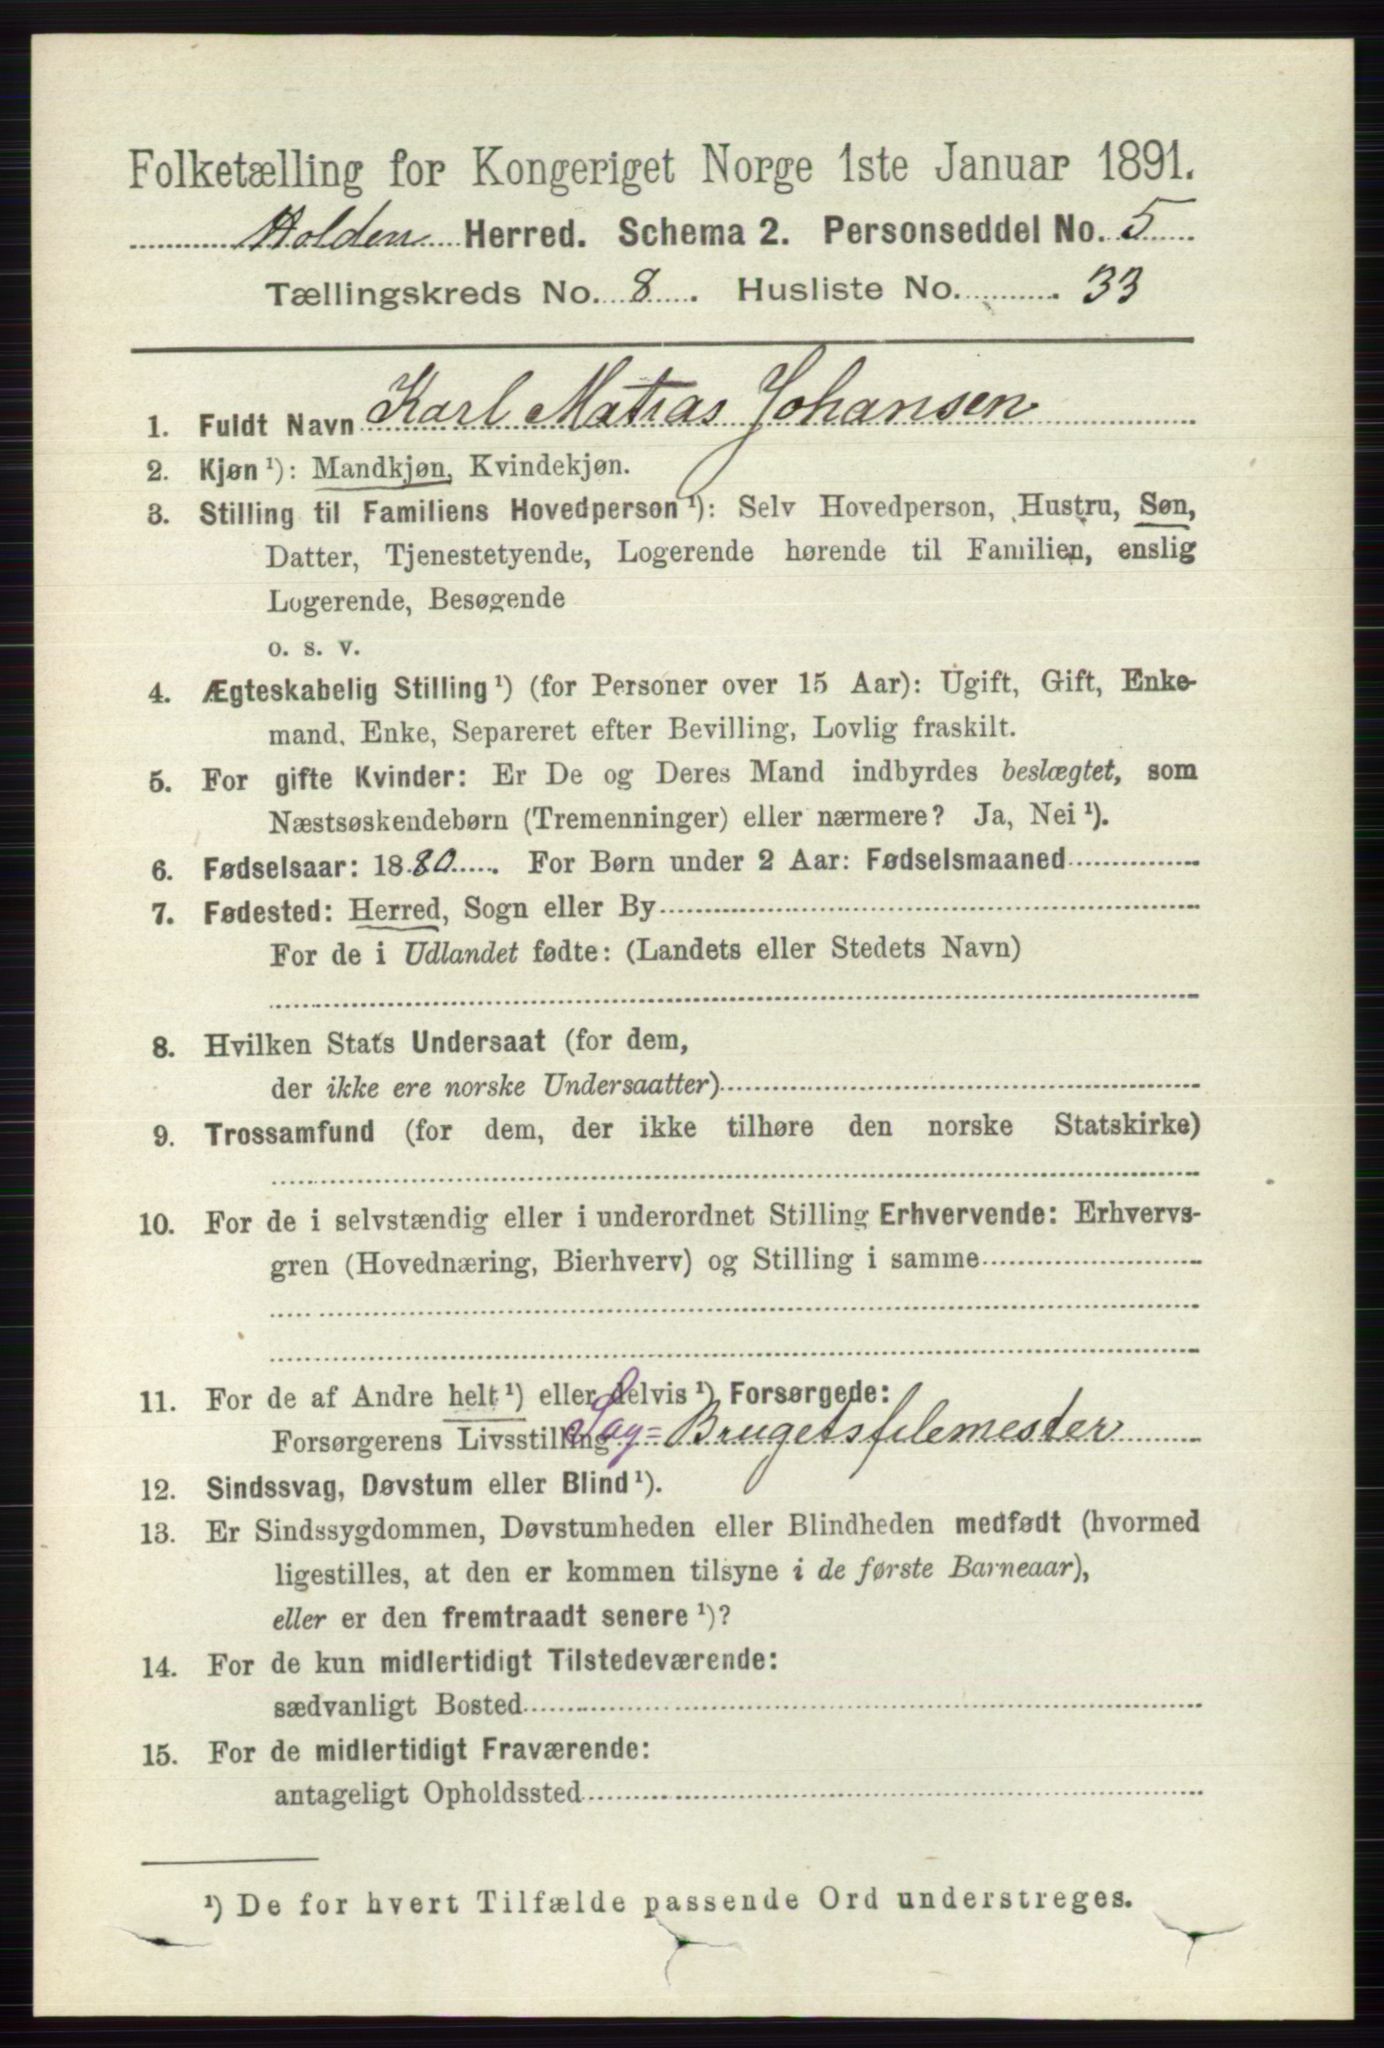 Folketælling for Kongeriget Norge 1ste Januar 1891.
Holden Herred. Schema 2. Personseddel No. 5
Tællingskreds No. 8. Husliste No. 33
1. Fuldt Navn Karl Matias Johansen
2. Kjøn ¹): Mandkjøn, Kvindekjøn.
3. Stilling til Familiens Hovedperson ¹): Selv Hovedperson, Hustru, Søn,
Datter, Tjenestetyende, Logerende hørende til Familien, enslig
Logerende, Besøgende
o. s. v.
4. Ægteskabelig Stilling ¹) (for Personer over 15 Aar): Ugift, Gift, Enke-
mand, Enke, Separeret efter Bevilling, Lovlig fraskilt.
5. For gifte Kvinder: Er De og Deres Mand indbyrdes beslægtet, som
Næstsøskendebørn (Tremenninger) eller nærmere? Ja, Nei ¹).
6. Fødselsaar: 1880. For Børn under 2 Aar: Fødselsmaaned
7. Fødested: Herred, Sogn eller By
For de i Udlandet fødte: (Landets eller Stedets Navn)
8. Hvilken Stats Undersaat (for dem,
der ikke ere norske Undersaatter)
9. Trossamfund (for dem, der ikke tilhøre den norske Statskirke)
10. For de i selvstændig eller i underordnet Stilling Erhvervende: Erhvervs-
gren (Hovednæring, Bierhverv) og Stilling i samme
11. For de af Andre helt ¹) eller delvis ¹) Forsørgede:
Forsørgerens Livsstilling Sag= Brugetsfilemester
12. Sindssvag, Døvstum eller Blind ¹).
13. Er Sindssygdommen, Døvstumheden eller Blindheden medfødt (hvormed
ligestilles, at den er kommen tilsyne i de første Barneaar),
eller er den fremtraadt senere ¹)?
14. For de kun midlertidigt Tilstedeværende:
sædvanligt Bosted
15. For de midlertidigt Fraværende:
antageligt Opholdssted
¹) De for hvert Tilfælde passende Ord understreges.